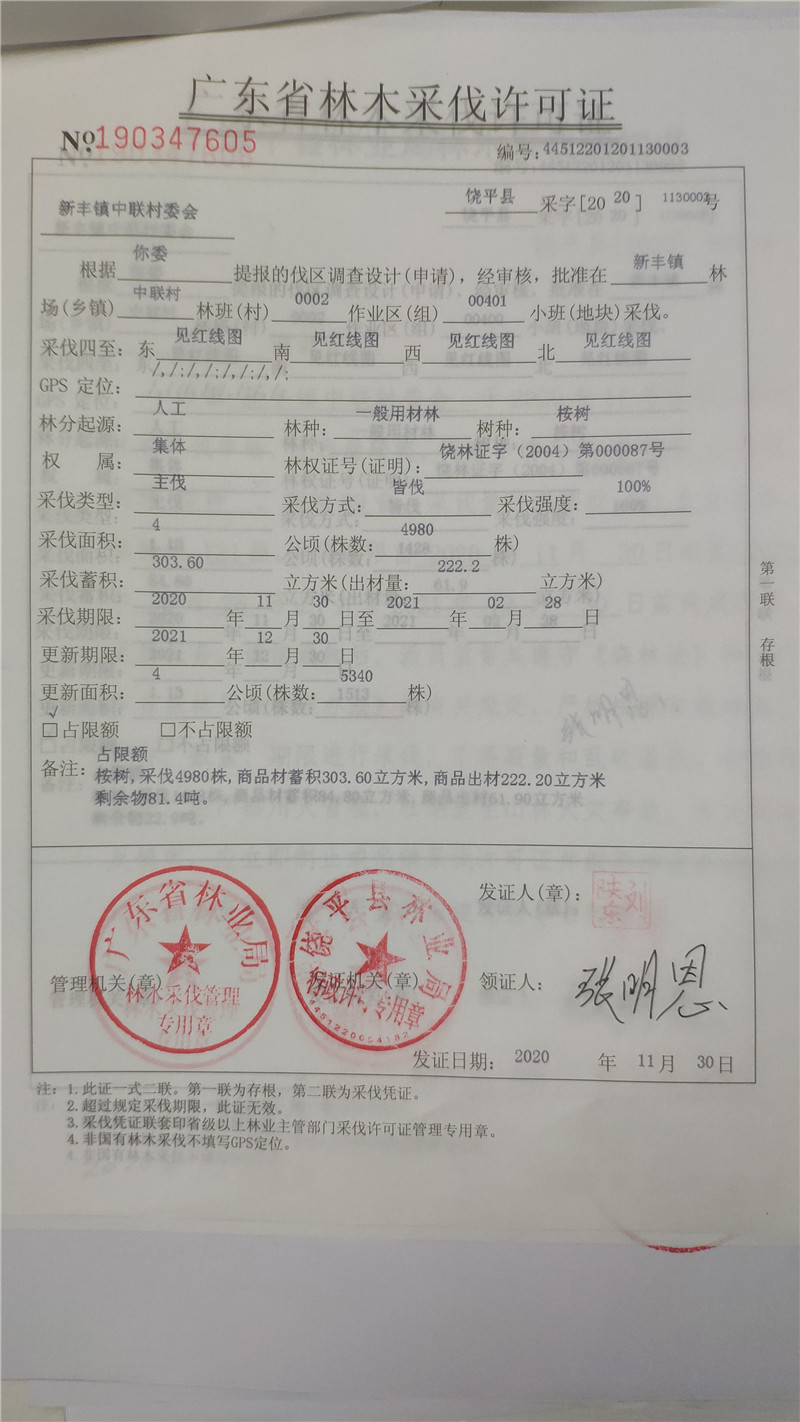 广东省林木采伐许可证
№190347605
编号:44512201201130003
饶平县 采字[2020] 1130003号
新丰镇中联村委会
根据 你委 提报的伐区调查设计(申请)，经审核，批准在 新丰镇 林
场(乡镇) 中联村 林班(村) 0002 作业区(组) 00401 小班(地块)采伐。
采伐四至: 东 见红线图 南 见红线图 西 见红线图 北 见红线图
GPS 定位: /,/;/,/;/,/;/,/;
林分起源: 人工 林种: 一般用材林 树种: 桉树
权 属: 集体 林权证号(证明): 饶林证字（2004）第000087号
采伐类型: 主伐 采伐方式: 皆伐 采伐强度: 100%
采伐面积: 4 公顷(株数: 4980 株)
采伐蓄积: 303.60 立方米(出材量: 222.2 立方米)
采伐期限: 2020 年 11 月 30 日至 2021 年 02 月 28 日
更新期限: 2021 年 12 月 30 日
更新面积: 4 公顷(株数: 5340 株)
√
□占限额 □不占限额
备注: 占限额
桉树,采伐4980株,商品材蓄积303.60立方米,商品出材222.20立方米
剩余物81.4吨。
第一联 存根
管理机关(章)
广东省林业局
林木采伐管理
专用章
发证机关(章)
饶平县林业局
行政许可专用章
发证人(章):
领证人: 张明恩
发证日期: 2020 年 11 月 30 日
注: 1.此证一式二联。第一联为存根，第二联为采伐凭证。
2.超过规定采伐期限，此证无效。
3.采伐凭证联套印省级以上林业主管部门采伐许可证管理专用章。
4.非国有林木采伐不填写GPS定位。